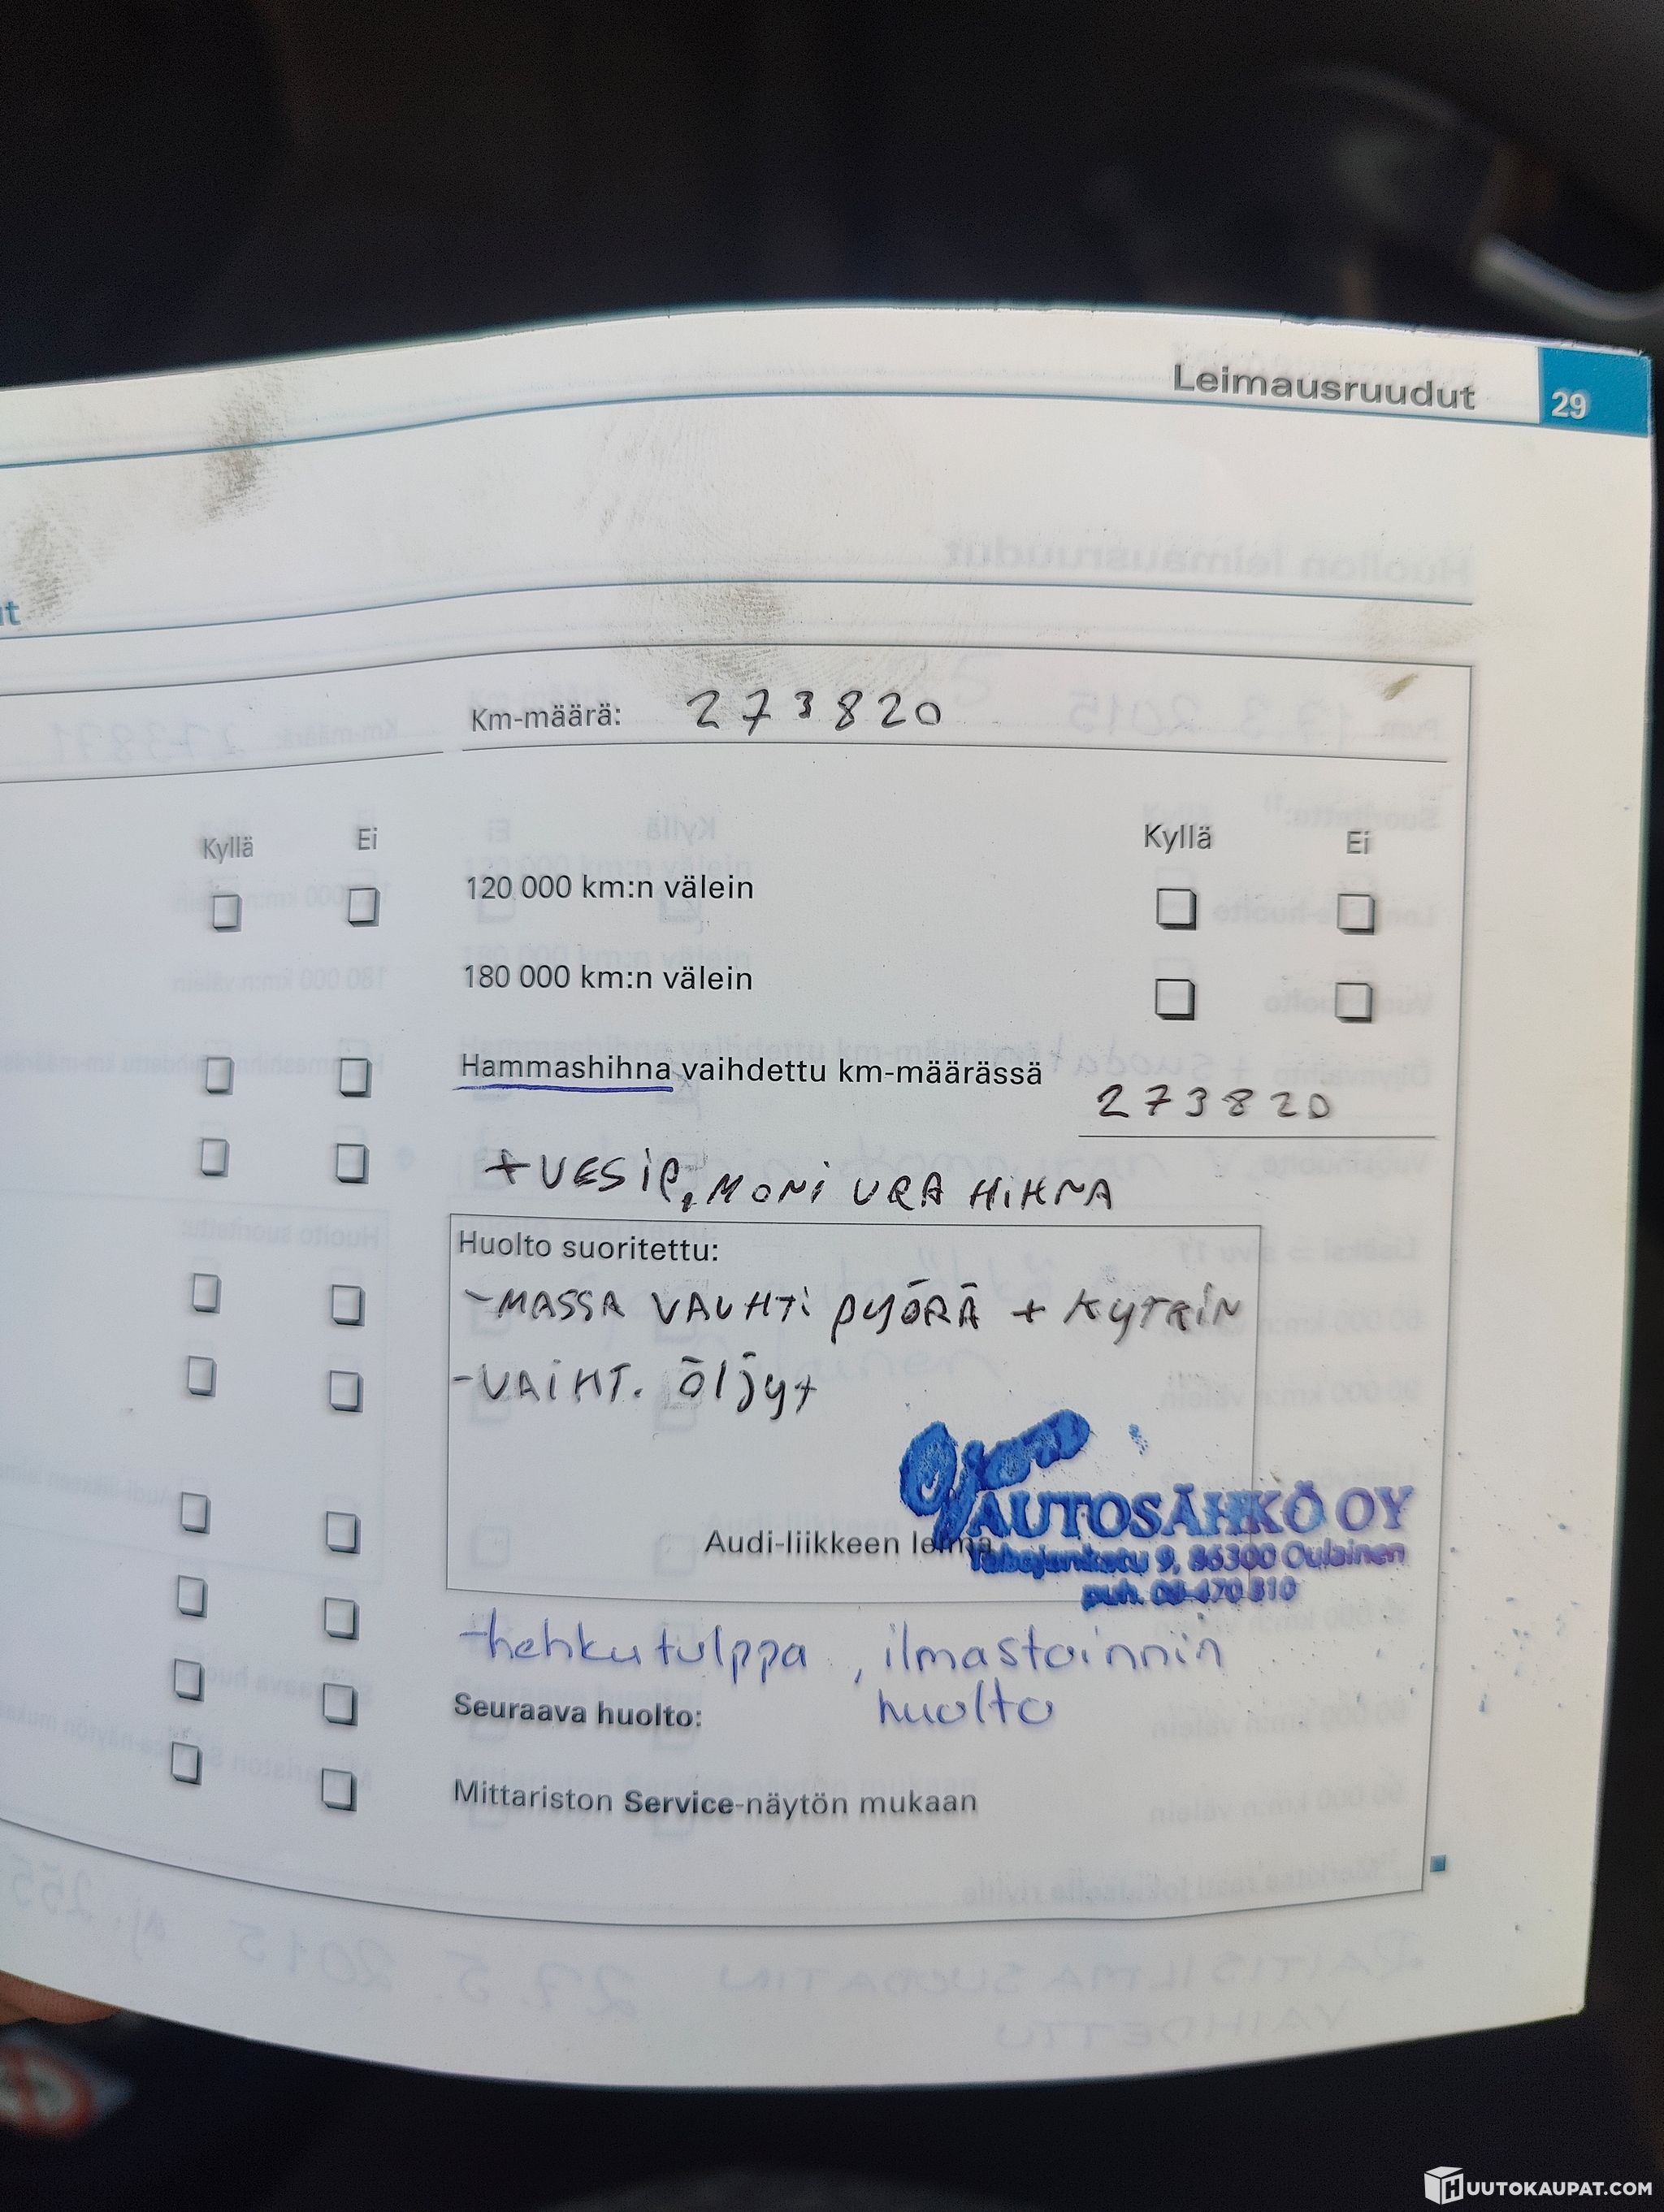 Leimausruudut 29
ut
Km-määrä: 273820
Kyllä Ei Kyllä Ei
120 000 km:n välein
180 000 km:n välein
Hammashihna vaihdettu km-määrässä
273820
+VESIP, MONI URA HIHNA
Huolto suoritettu:
-MASSA VAUHTi pyÖRÄ + KYTKIN
-VAIHT. Öljyt
Ojan
AUTOSÄHKÖ OY
9, 86300 Oulainen
puh. 08-470 810
Audi-liikkeen leima
-hehkutulppa, ilmastoinnin
huolto
Seuraava huolto:
Mittariston Service-näytön mukaan
HUUTOKAUPAT.COM